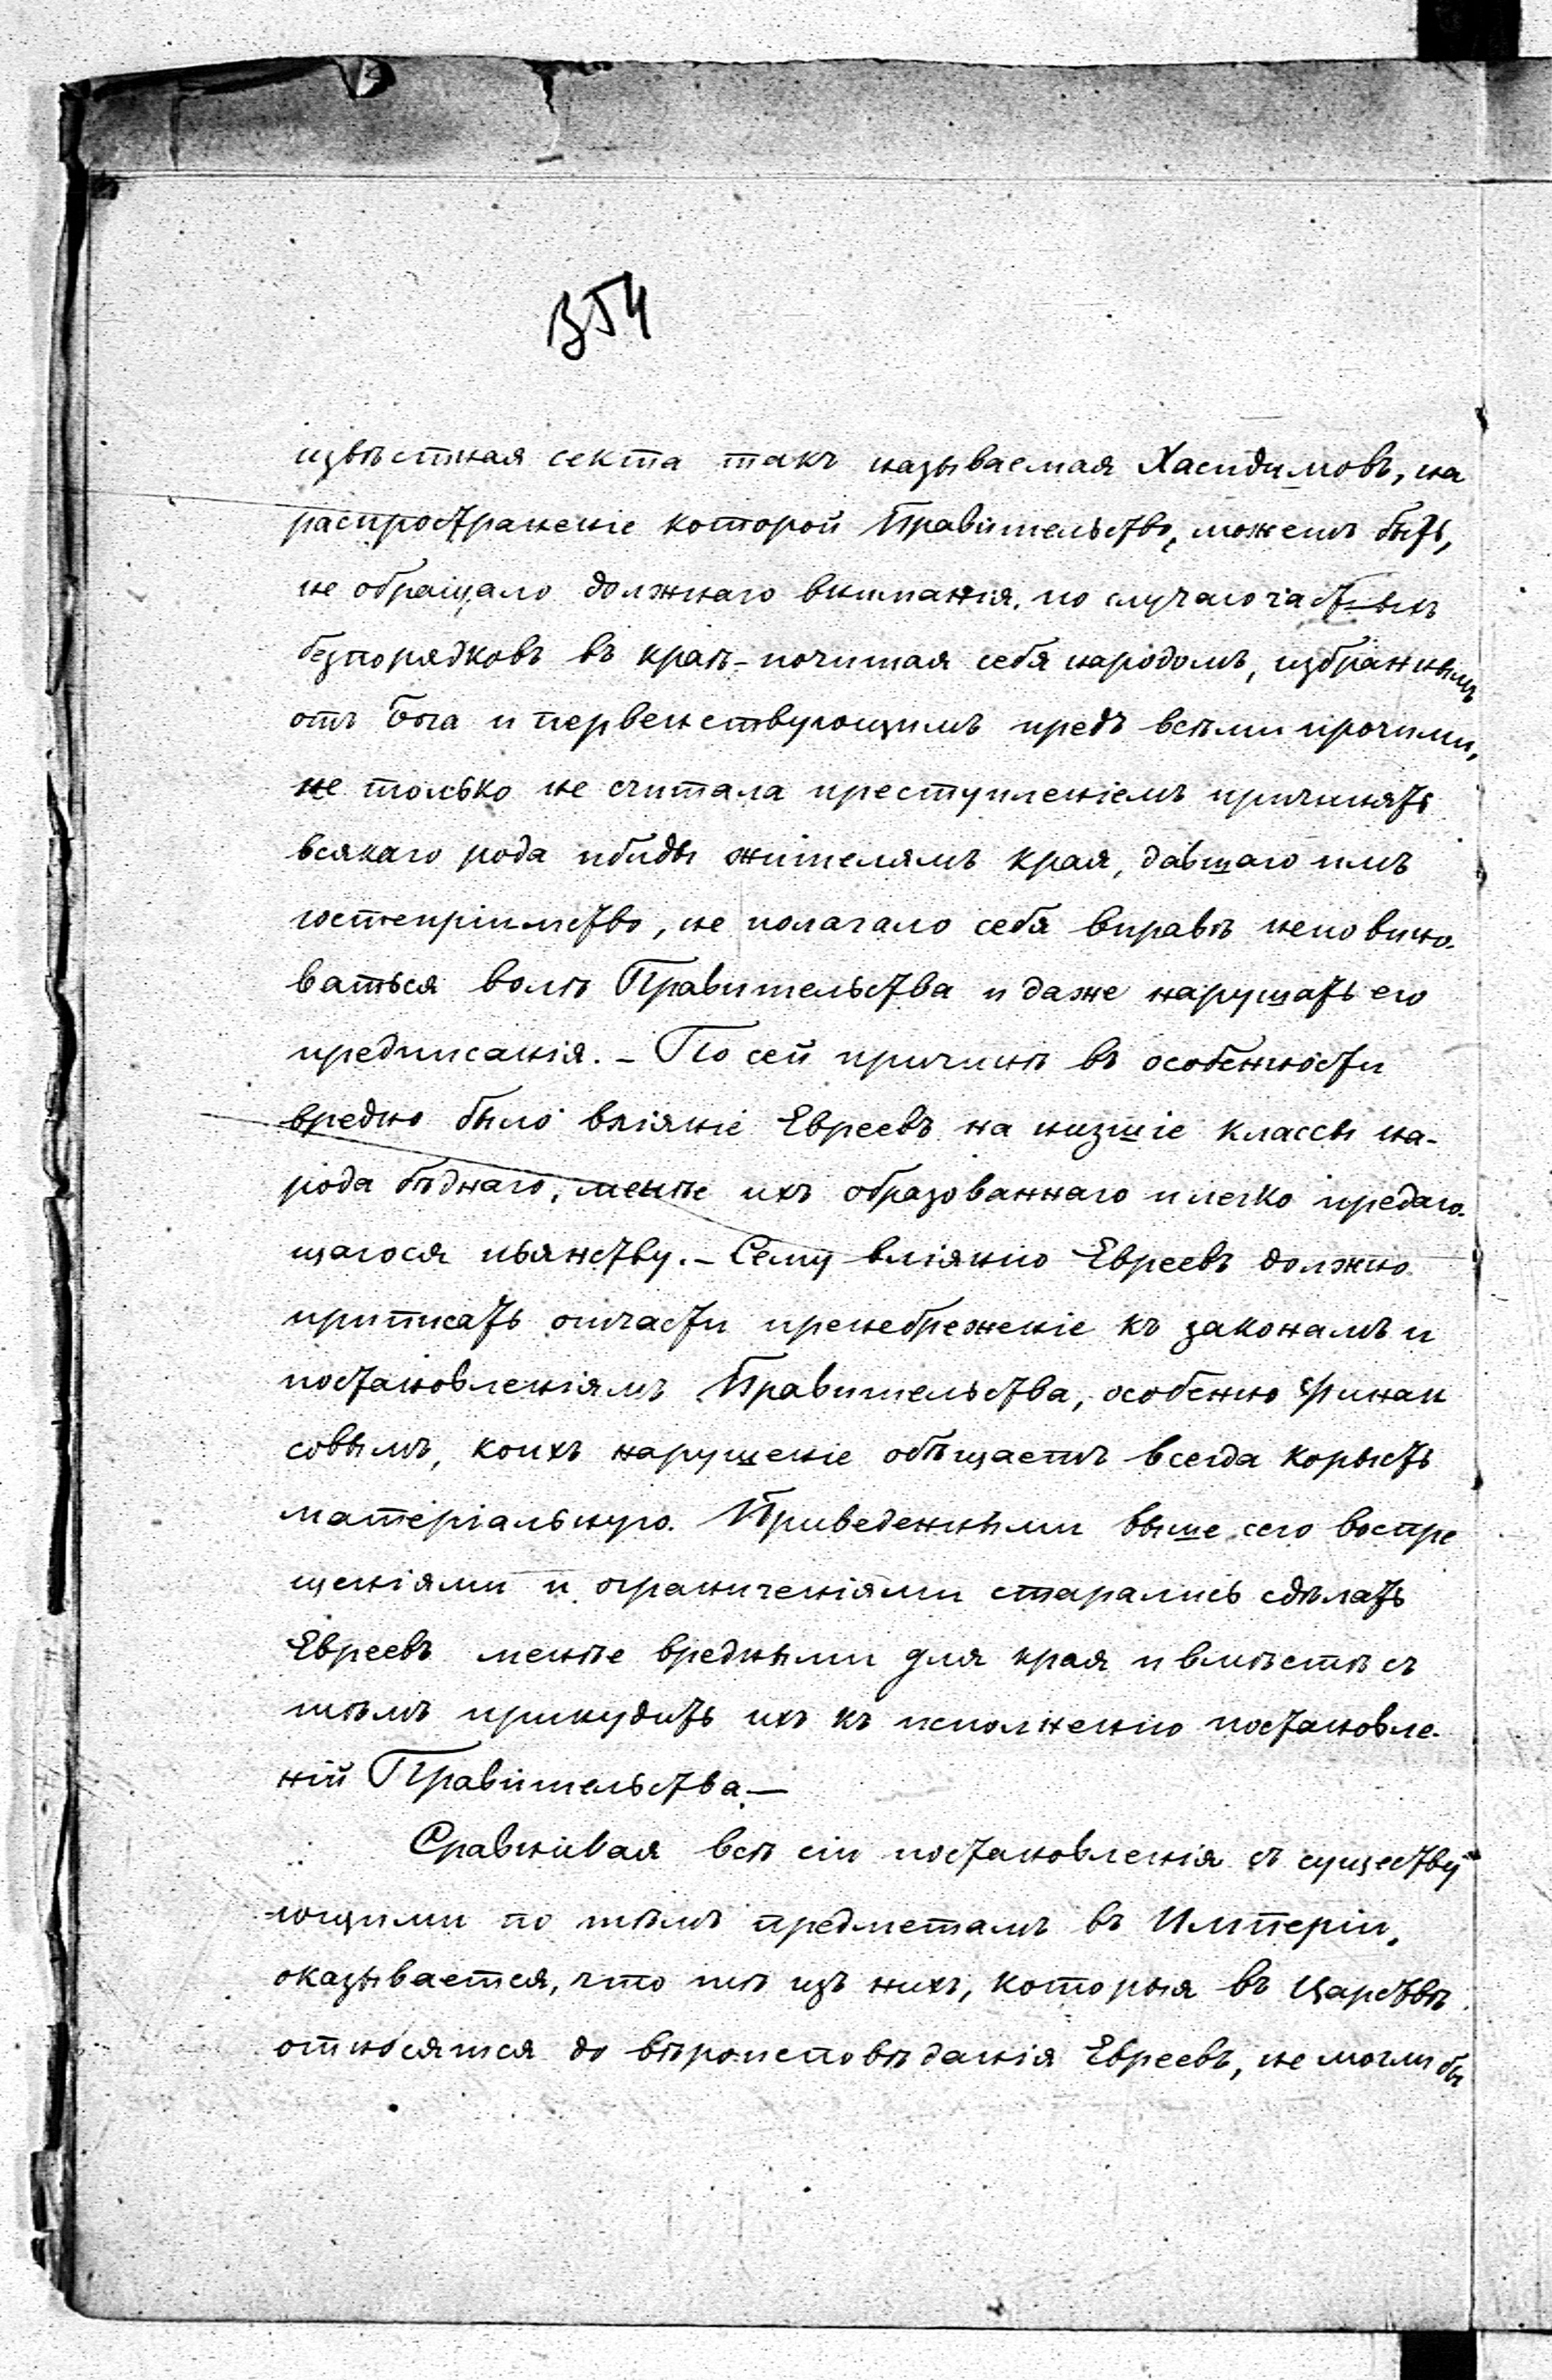 354
извѣстная секта такъ называемая Хасидимовъ, на
распространеніе которой Правительство, можетъ быть,
не обращало должнаго вниманія, по случаю частыхъ
безпорядковъ въ краѣ - почитая себя народомъ, избраннымъ
отъ Бога и первенствующимъ предъ всѣми прочими,
не только не считала преступленіемъ причинять
всякаго рода обиды жителямъ края, давшаго имъ
гостепріимство, но полагало себя вправѣ неповино-
ваться волѣ Правительства и даже нарушать его
предписанія. - По сей причинѣ въ особенности
вредно было вліяніе Евреевъ на низшіе классы на-
рода бѣднаго, менѣе ихъ образованнаго и легко предаю-
щагося пьянству. - Сему вліянію Евреевъ должно
приписать отчасти пренебреженіе къ законамъ и
постановленіямъ Правительства, особенно Финан
совымъ, коихъ нарушеніе обѣщаетъ всегда корысть
матеріальную. Приведенными выше сего воспре
щеніями и ограниченіями старались сдѣлать
Евреевъ менѣе вредными для края и вмѣстѣ съ
тѣмъ принудить ихъ къ исполненію постановле-
ній Правительства. —
Сравнивая всѣ сіи постановленія съ существу
-ющими по тѣмъ предметамъ въ Имперіи,
оказывается, что тѣ изъ нихъ, которыя въ Царствѣ
относятся до вѣроисповѣданія Евреевъ, не могли бы